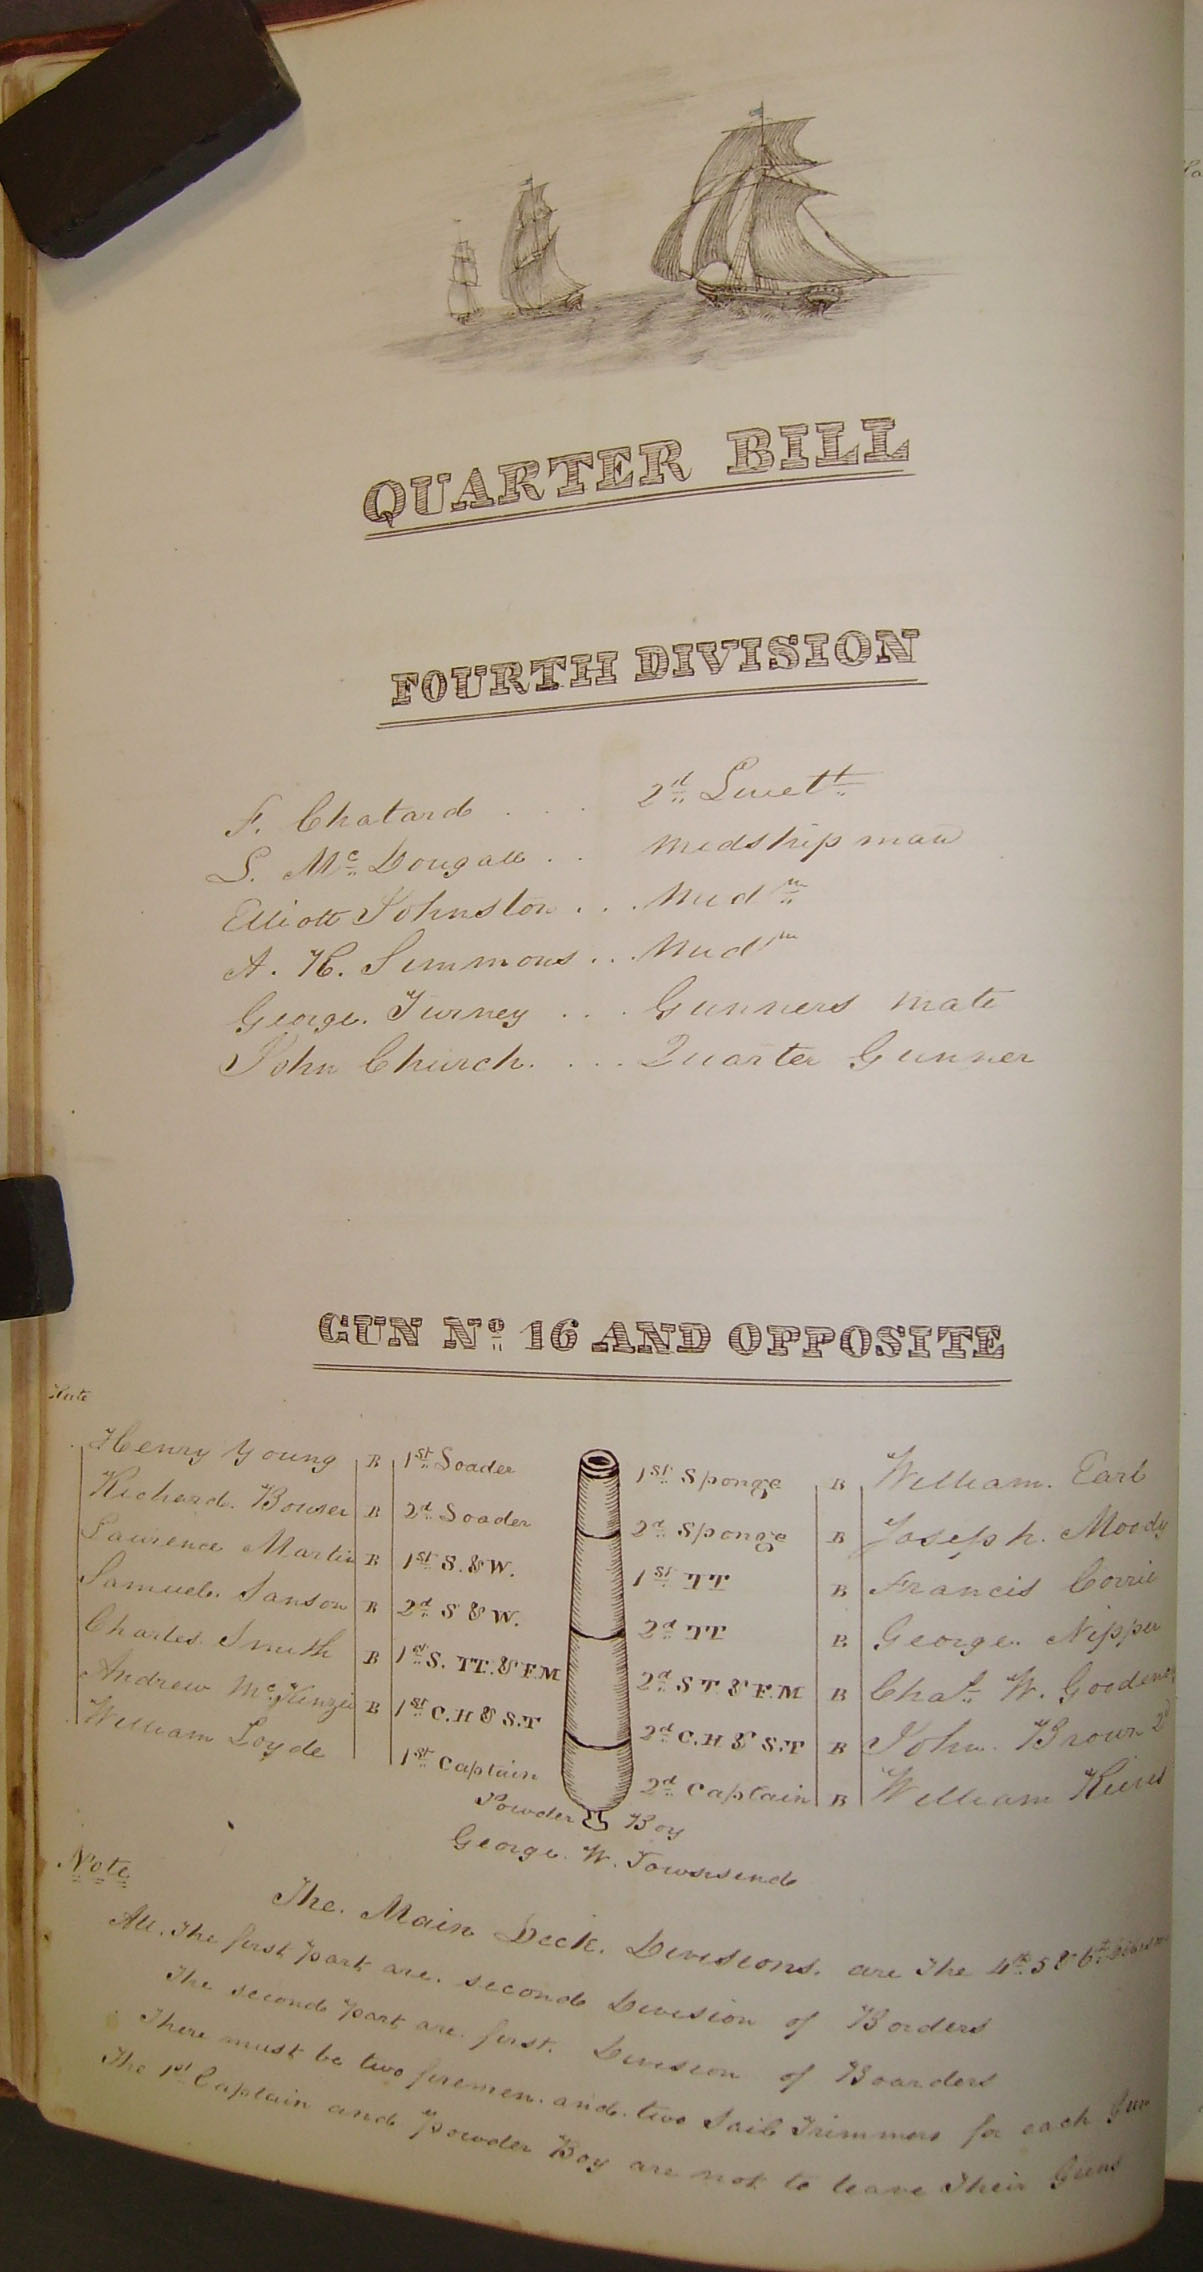 QUARTER BILL
FOURTH DIVISION
F. Chatard . . . 2d Lieutt
L. McDougall . . Midshipman
Elliott Johnston . . . Midm
A. H. Simmons . . . Midm
George. Turney . . . Gunners mate
John Church. . . . Quarter Gunner
GUN No 16 AND OPPOSITE
Henry Young B 1st Loader 1st Sponge B William. Earl
Richard. Bowser B 2d Loader 2d Sponge B Joseph. Moody
Lawrence Martin B 1st S.&W. 1st TT B Francis Corrie
Samuel. Sanson B 2d S&W. 2d TT B George. Nipper
Charles Smith B 1st S. TT.&F.M 2d S T.&F.M B Chas W.
Andrew McKenzie B 1st C.H & S.T 2d C.H & S.T B John. Brown 2d
William Loyde 1st Captain 2d Captain B William
Powder Boy
George. W. Townsend
Note
The. Main Deck. Divisions. are The 4th 5 & 6th
All. The first part are. second Division of Borders
The second part are. first. Division of Boarders
There must be two firemen. and. two Sail Trimmers for each Gun
The 1st Captain and Powder Boy are not to leave Their Guns